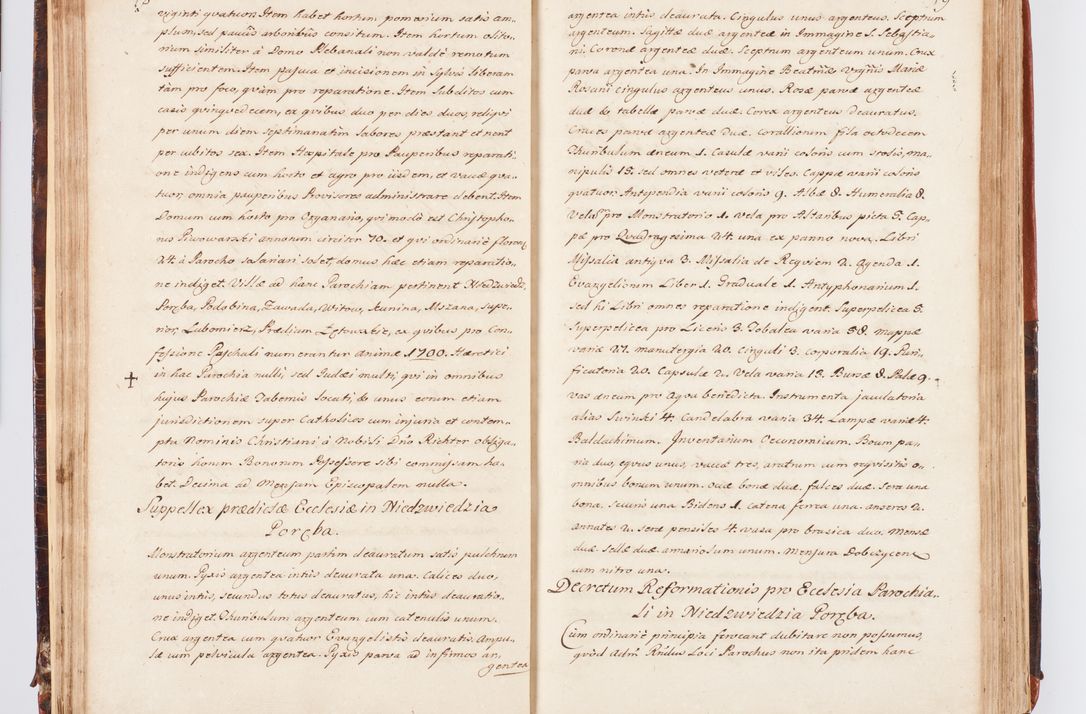 viginti quatuor. Item habet hortum pomarium satis am„
plum, sed paucis arboribus consitum. Item hortum olito„
rium similiter à Domo Plebanali non valdè remotum
sufficientem. Item pascua et incisionem in sylvis liberam
tàm pro foco, quàm pro reparatione. Item Subditos cum
casis quinquedecem, ex quibus duo per dies duos, reliqui
per unum diem septimanatim labores præstant et nent
per cubitos sex. Item Hospitale pro Pauperibus reparati„
one indigens cum horto et agro pro iisdem, et vaccæ qua„
tuor, omnia pauperibus Provisores administrare debent. Item
Domum cum horto pro Organario, qui modò est Christopho„
rus Piwowarski annorum circiter 70. et qui ordinariè floren:
24. à Parocho salariari solet, domus hæc etiam reparatio„
ne indiget. Villæ ad hanc Parochiam pertinent Niedzwiedz,
Poręba, Podobina, Zawada, Witow, Konina, Mszana, supe„
rior, Lubomierz, Prædium Łętowskie, ex quibus pro Con„
fessione Paschali numerantur animæ 1700. Hæretici
in hac Parochia nulli, sed Judæi multi, qui in omnibus
hujus Parochiæ Tabernis locati, & unus eorum etiam
jurisdictionem super Catholicos cum injuria et contem„
ptu Nominis Christiani à Nobili Dno Richter obliga„
torio horum Bonorum Possessore sibi commissam ha„
bet. Decima ad Mensam Episcopalem nulla.
Suppellex prædictæ Ecclesiæ in Niedzwiedzia
Poręba.
Monstratorium argenteum partim deauratum satis pulchrum
unum. Pyxis argentea intùs deaurata una. Calices duo,
unus intùs, secundus totus deauratus, hic intùs deauratio„
ne indiget. Thuribulum argenteum cum catenulis unum.
Crux argentea cum quatuor Evangelistis deauratis. Ampu„
læ cum pelvicula argentea. Pyxis parva ad infirmos ar„
gentea
argentea intùs deaurata. Cingulus unus argenteus. Sceptrum
argenteum. Sagittæ duæ argenteæ in Immagine S. Sebastia
ni. Coronæ argenteæ duæ. Sceptrum argenteum unum. Crux
parva argentea una. In Immagine Beatmæ Vrgnis Mariæ
Rosarii cingulus argenteus unus. Rosæ parvæ argenteæ
duæ & tabellæ parvæ duæ. Corea argenteus deauratus.
Cruces parvæ argenteæ duæ. Corallionum fila octodecem
Thuribulum æneum 1. Casulæ varii coloris cum stolis, ma„
nipulis 15. sed omnes veteræ et viles. Cappæ varii coloris
quatuor. Antependia varii coloris 9. Albæ 8. Humeralia 8.
Vela pro Monstratorio 1. vela pro Altaribus picta 5. Cap„
pæ pro Quadragesima 24. una ex panno nova. Libri
Missalia antiqua 3. Missalia de Requiem 2. Agenda 1.
Evangeliorum Liber 1. Graduale 1. Antyphonarium 1.
sed hi Libri omnes reparatione indigent. Superpelicea 5.
Superpelicea pro Liceris 3. Tobalea varia 38. mappæ
variæ 27. manutergia 20. Cinguli 3. Corporalia 19. Puri„
ficatoria 20. Capsulæ 2. Vela varia 13. Bursæ 8. Palæ 9.
vas æneum pro Aqua benedicta. Instrumenta jaculatoria
alias Swinski 4. Candelabra varia 34. Lampæ variæ 4.
Baldachimum. Inventarium Oeconomicum. Boum pa„
ria duo, equus unus, vaccæ tres, aratrum cum requisitis o„
mnibus bonum unum. ocæ bonæ duæ. falces duæ. Sera una
bona. Securis una Bidens 1. catena ferrea una. anseres 2.
annates 2. seræ pensiles 4. vasa pro brasica duo. Mensæ
duæ. sellæ duæ. armariolum unum. Mensura Dobczycens
cum nitro una.
Decretum Reformationis pro Ecclesia Parochia„
li in Niedzwiedzia Poręba.
Cum ordinariè principia ferveant dubitare non possumus,
quòd Adm Rndus Loci Parochus non ita pridem hanc